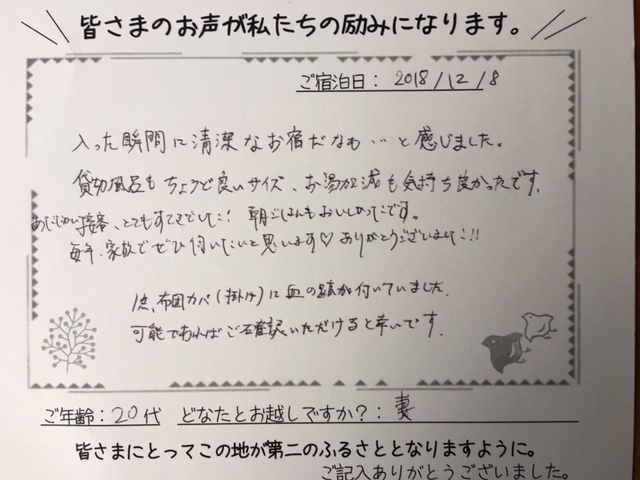 皆さまのお声が私たちの励みになります。
ご宿泊日： 2018/12/8
入った瞬間に清潔なお宿だなも…と感じました。
貸切風呂もちょうど良いサイズ、お湯加減も気持ち良かったです。
接客、とてもすてきでした！朝ごはんもおいしかったです。
毎年、家族でぜひ伺いたいと思います♡ありがとうございました!!
1点、布団カバー(掛け)に血の跡が付いていました。
可能であればご確認いただけると幸いです。
ご年齢：20代 どなたとお越しですか？：妻
皆さまにとってこの地が第二のふるさととなりますように。
ご記入ありがとうございました。